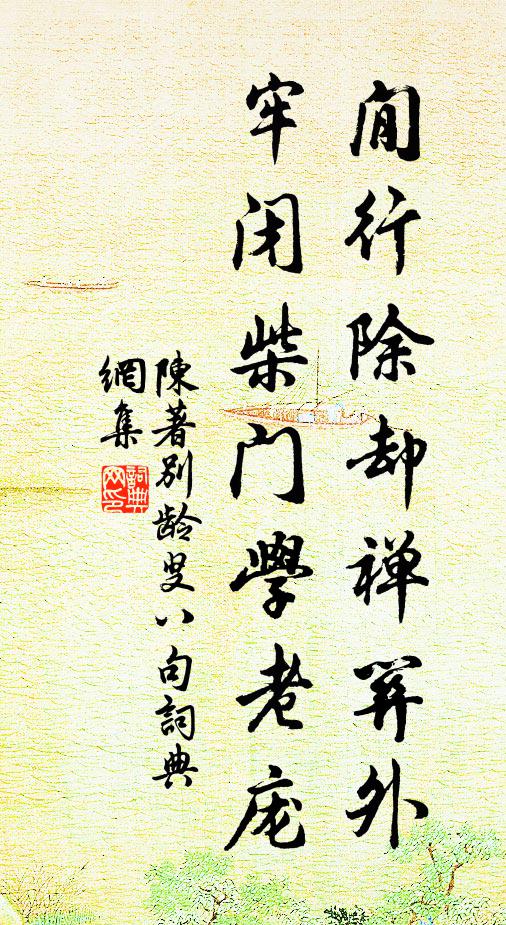 閒行除却禅關外
牢闭柴门學老庞
陳著别龄叟八句詞典
網集
詞典
网印